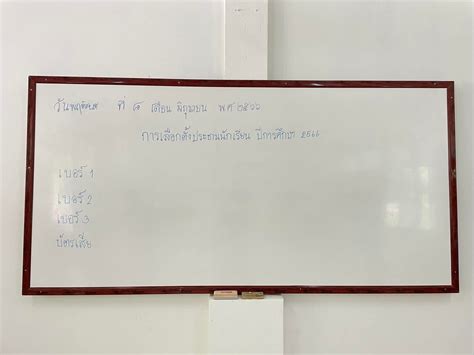 วันพฤหัสบดี ที่ ๘ เดือน มิถุนายน พ.ศ.๒๕๖๖
การเลือกตั้งประธานนักเรียน ปีการศึกษา 2566
เบอร์ 1
เบอร์ 2
เบอร์ 3
บัตรเสีย